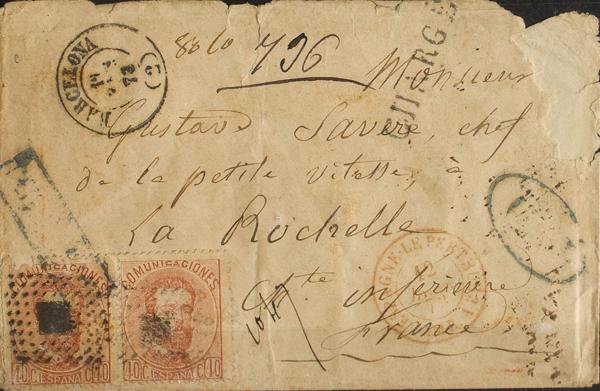 BARCELONA
(2)
796
CHARGÉ
Monsieur
Gustave Savere, chef
de la petite vitesse, à
La Rochelle
Cte inférieure
France
COMUNICACIONES
40 C. ESPAÑA C. 40
COMUNICACIONES
40 C. ESPAÑA C. 40